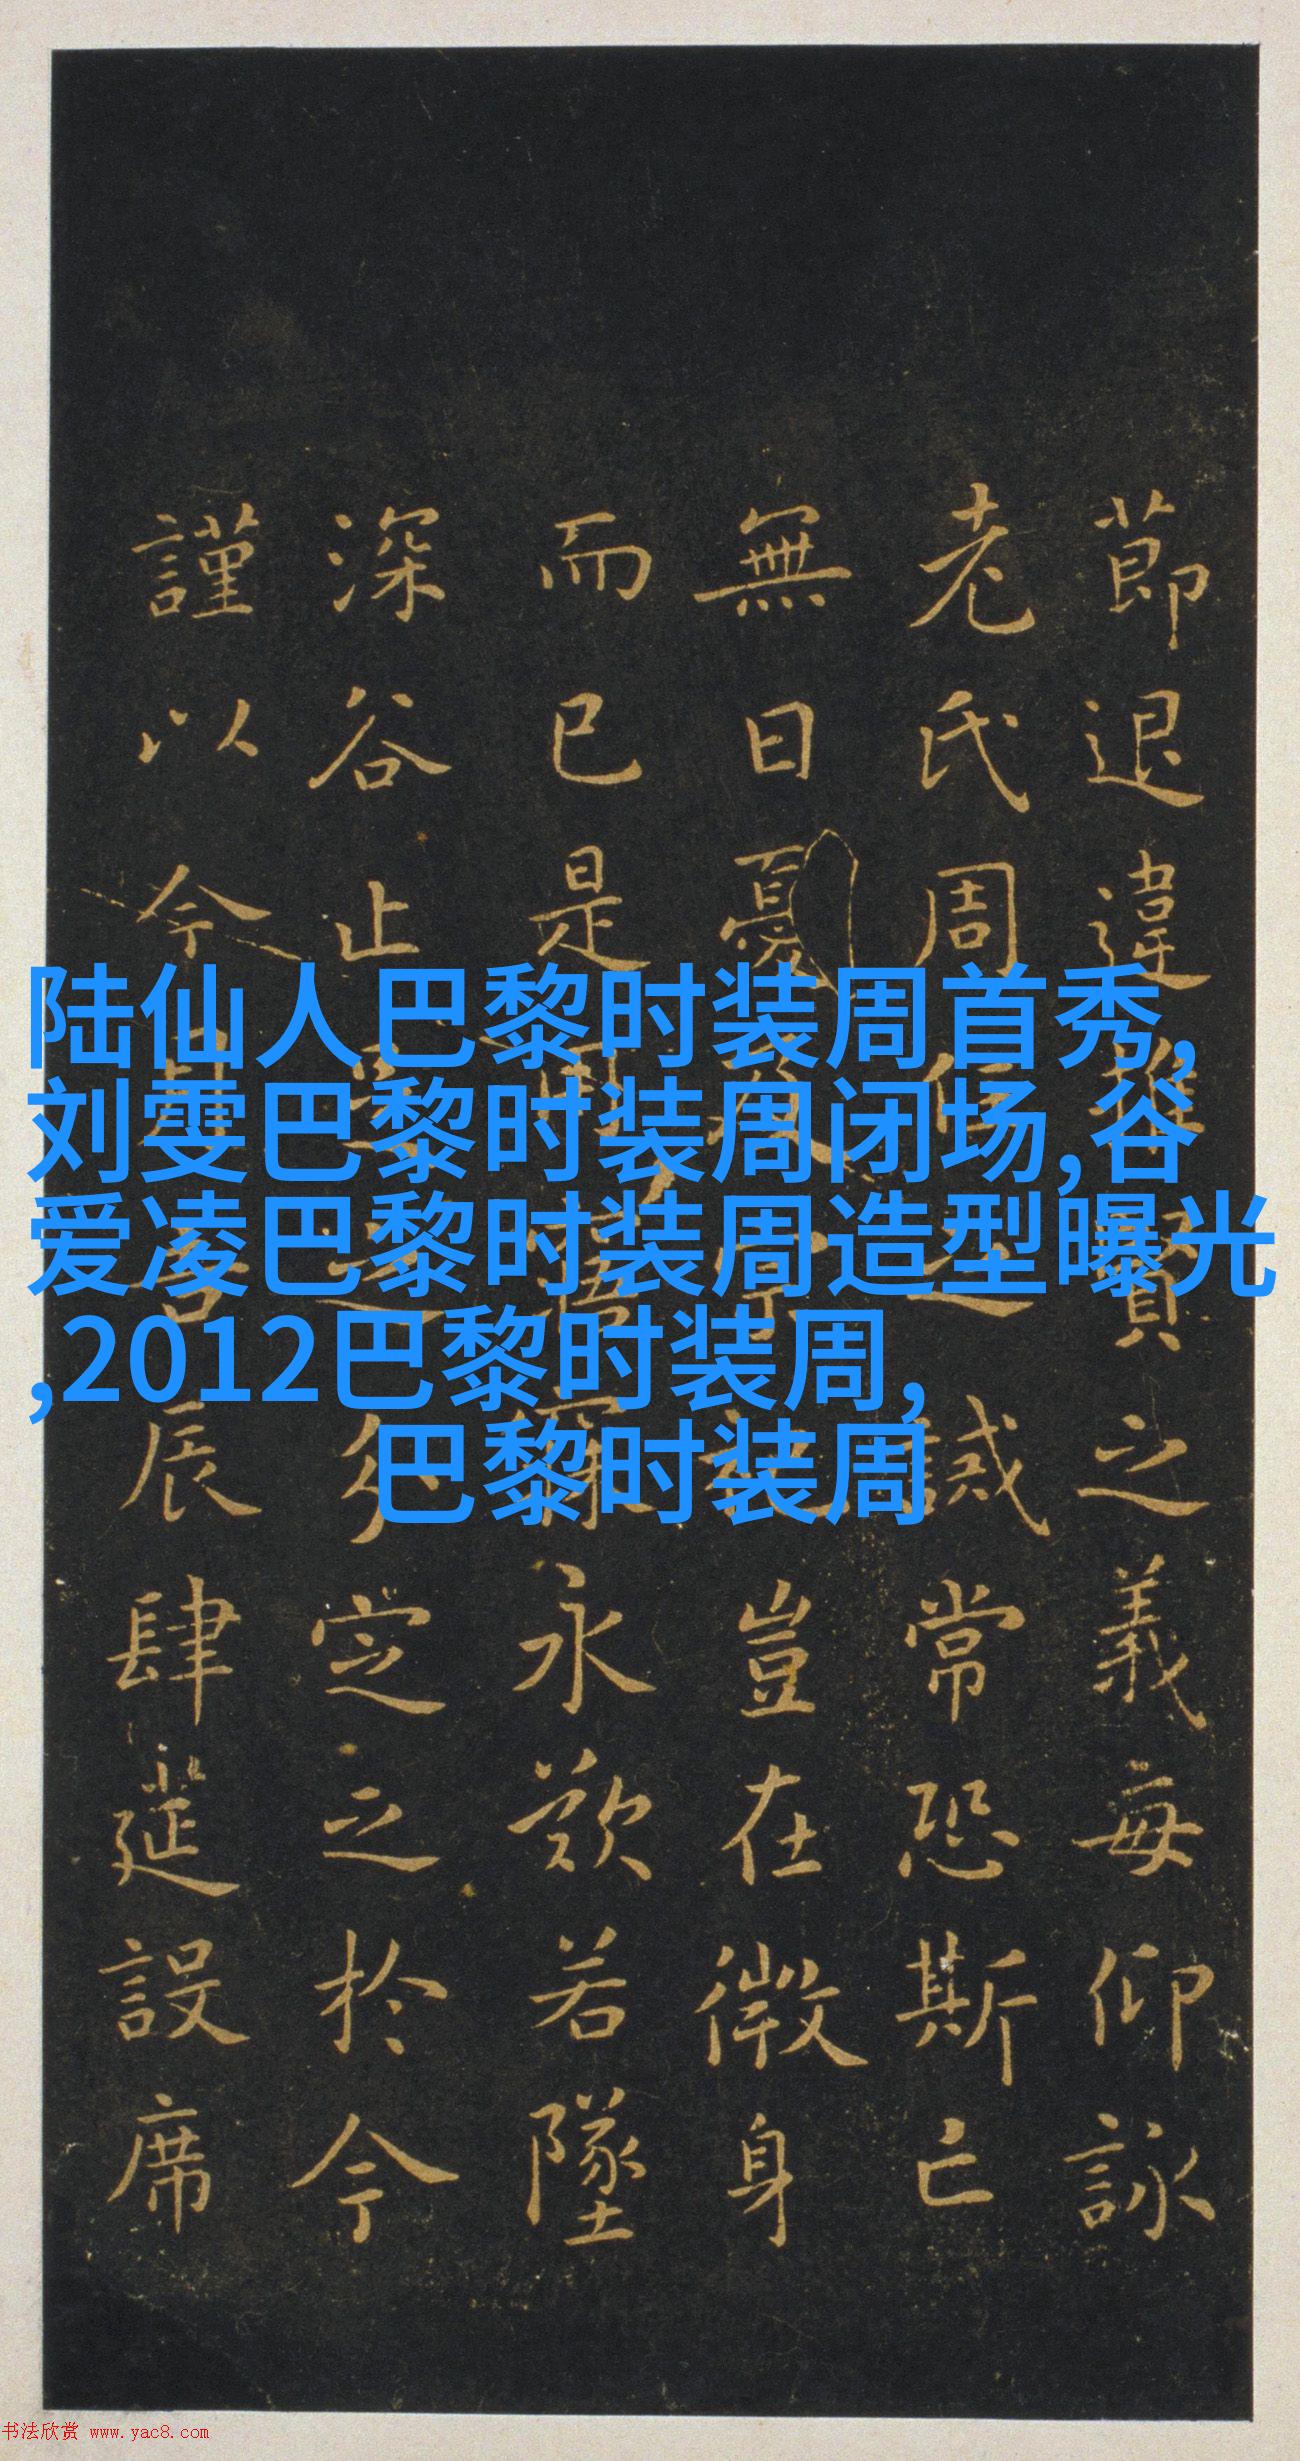 陆仙人巴黎时装周首秀,
刘雯巴黎时装周闭场,谷
爱凌巴黎时装周造型曝光
,2012巴黎时装周,
巴黎时装周
節退違推賢之義每仰詠
老氏周任之誡常恐斯亡
無日憂及宗祀豈在微身
而已是用寤寐永歎若墜
深谷止足之分定之於今
謹以今月吉辰肆筵設席
书法欣赏 www.yac8.com